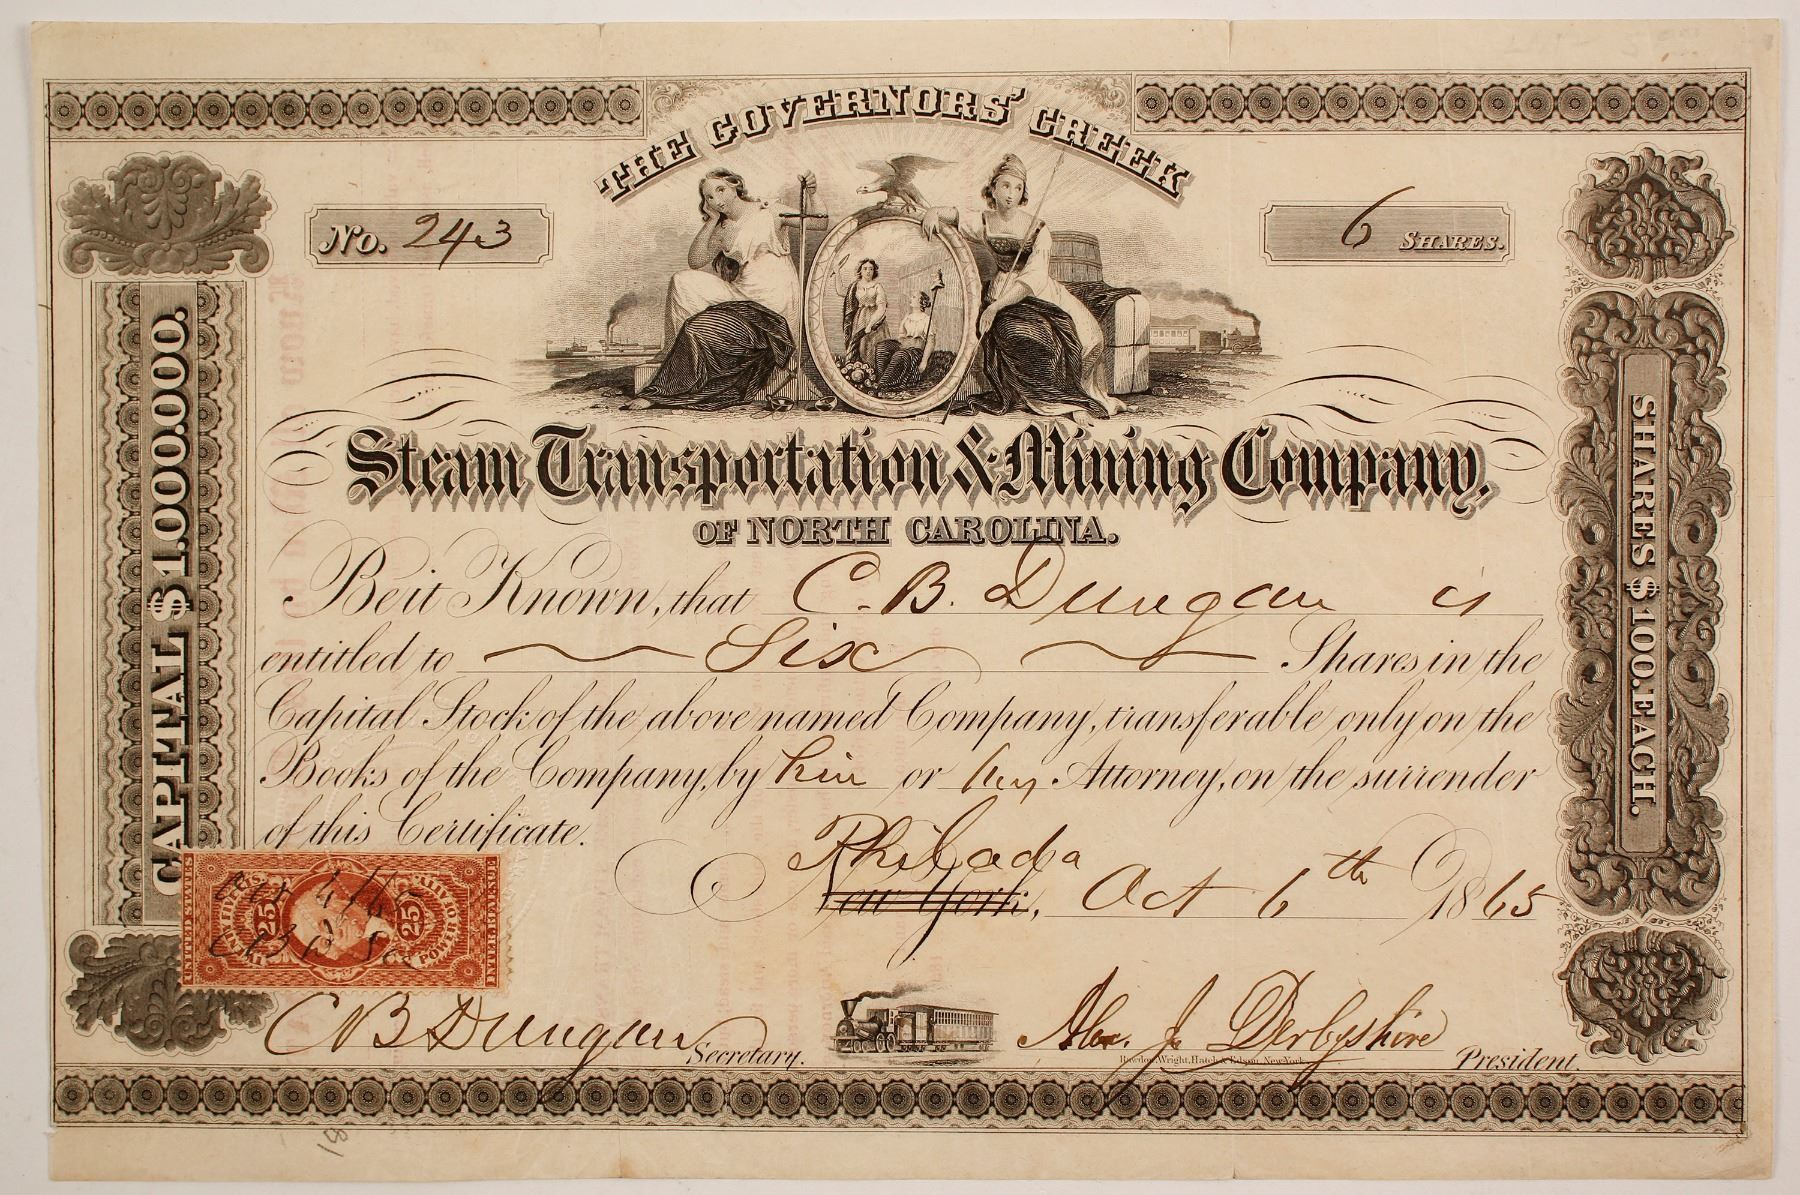 THE GOVERNORS' CREEK
No. 243
6 SHARES.
Steam Transportation & Mining Company,
OF NORTH CAROLINA.
CAPITAL $1.000.000.
SHARES $100. EACH.
Be it Known, that C. B. Dungan is
entitled to Six Shares in the
Capital Stock of the above named Company, transferable only on the
Books of the Company, by him or his Attorney, on the surrender
of this Certificate.
Philada
New York, Oct 6th 1865
UNITED STATES
INTER. REVENUE
25
25
POWER OF ATT'Y
C B Dungan Secretary.
Alex. J. Derbyshire President.
Rawdon, Wright, Hatch & Edson, New York